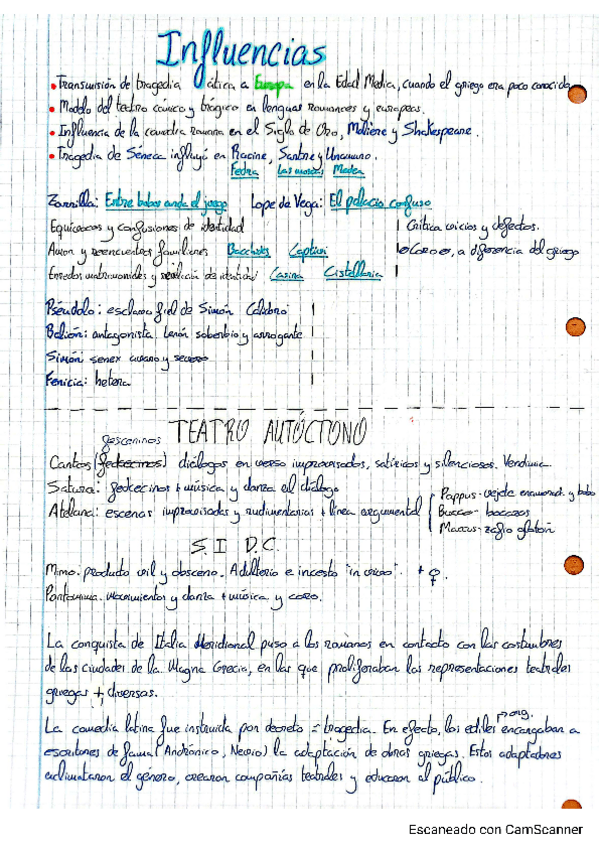 Influencias
• Transmisión de tragedia ática a Europa en la Edad Media, cuando el griego era poco conocido
• Modelo del teatro cómico y trágico en lenguas romances y europeas.
• Influencia de la comedia romana en el Siglo de Oro, Molière y Shakespeare.
• Tragedia de Séneca influyó en Racine, Sartre y Unamuno.
Fedra Las moscas Medea
Zorrilla: Entre bobos anda el juego Lope de Vega: El palacio confuso
Equívocos y confusiones de identidad | Critica vicios y defectos.
y reencuentros familiares Bacchides Captivi a diferencia del griego
Enredos matrimoniales y de identidad Casina Cistellaria
Pséudolo: esclavo fiel de Simón Calidoro
Balión: antagonista. Lenón soberbio y arrogante
Simón senex y
Fenicia: hetera
TEATRO AUTÓCTONO
fesceninos
Cantos (fedecinos) diálogos en verso improvisados, satíricos y silenciosos. Vendimia
Satura: fedecinos + música y danza al diálogo
Atellana: escenas improvisadas y rudimentarias + línea argumental
Pappus- vejete enamorad. y bobo
Bucco- bocazas
Maccus- zafio glotón
S. I D.C.
Mimo. producto vil y obsceno. Adulterio e incesto + ♀.
Pantomima. Movimientos y danza + música y coro.
La conquista de Italia Meridional puso a los romanos en contacto con las costumbres
de las ciudades de la Magna Grecia, en las que proliferaban las representaciones teatrales
griegas + diversas.
La comedia latina fue instruida por decreto = tragedia. En efecto, los ediles encargaban a
escritores de fama (Andrónico, Nevio) la adaptación de obras griegas. Estos adaptadores
aclimataron el género, crearon compañías teatrales y educaron al público.
Escaneado con CamScanner